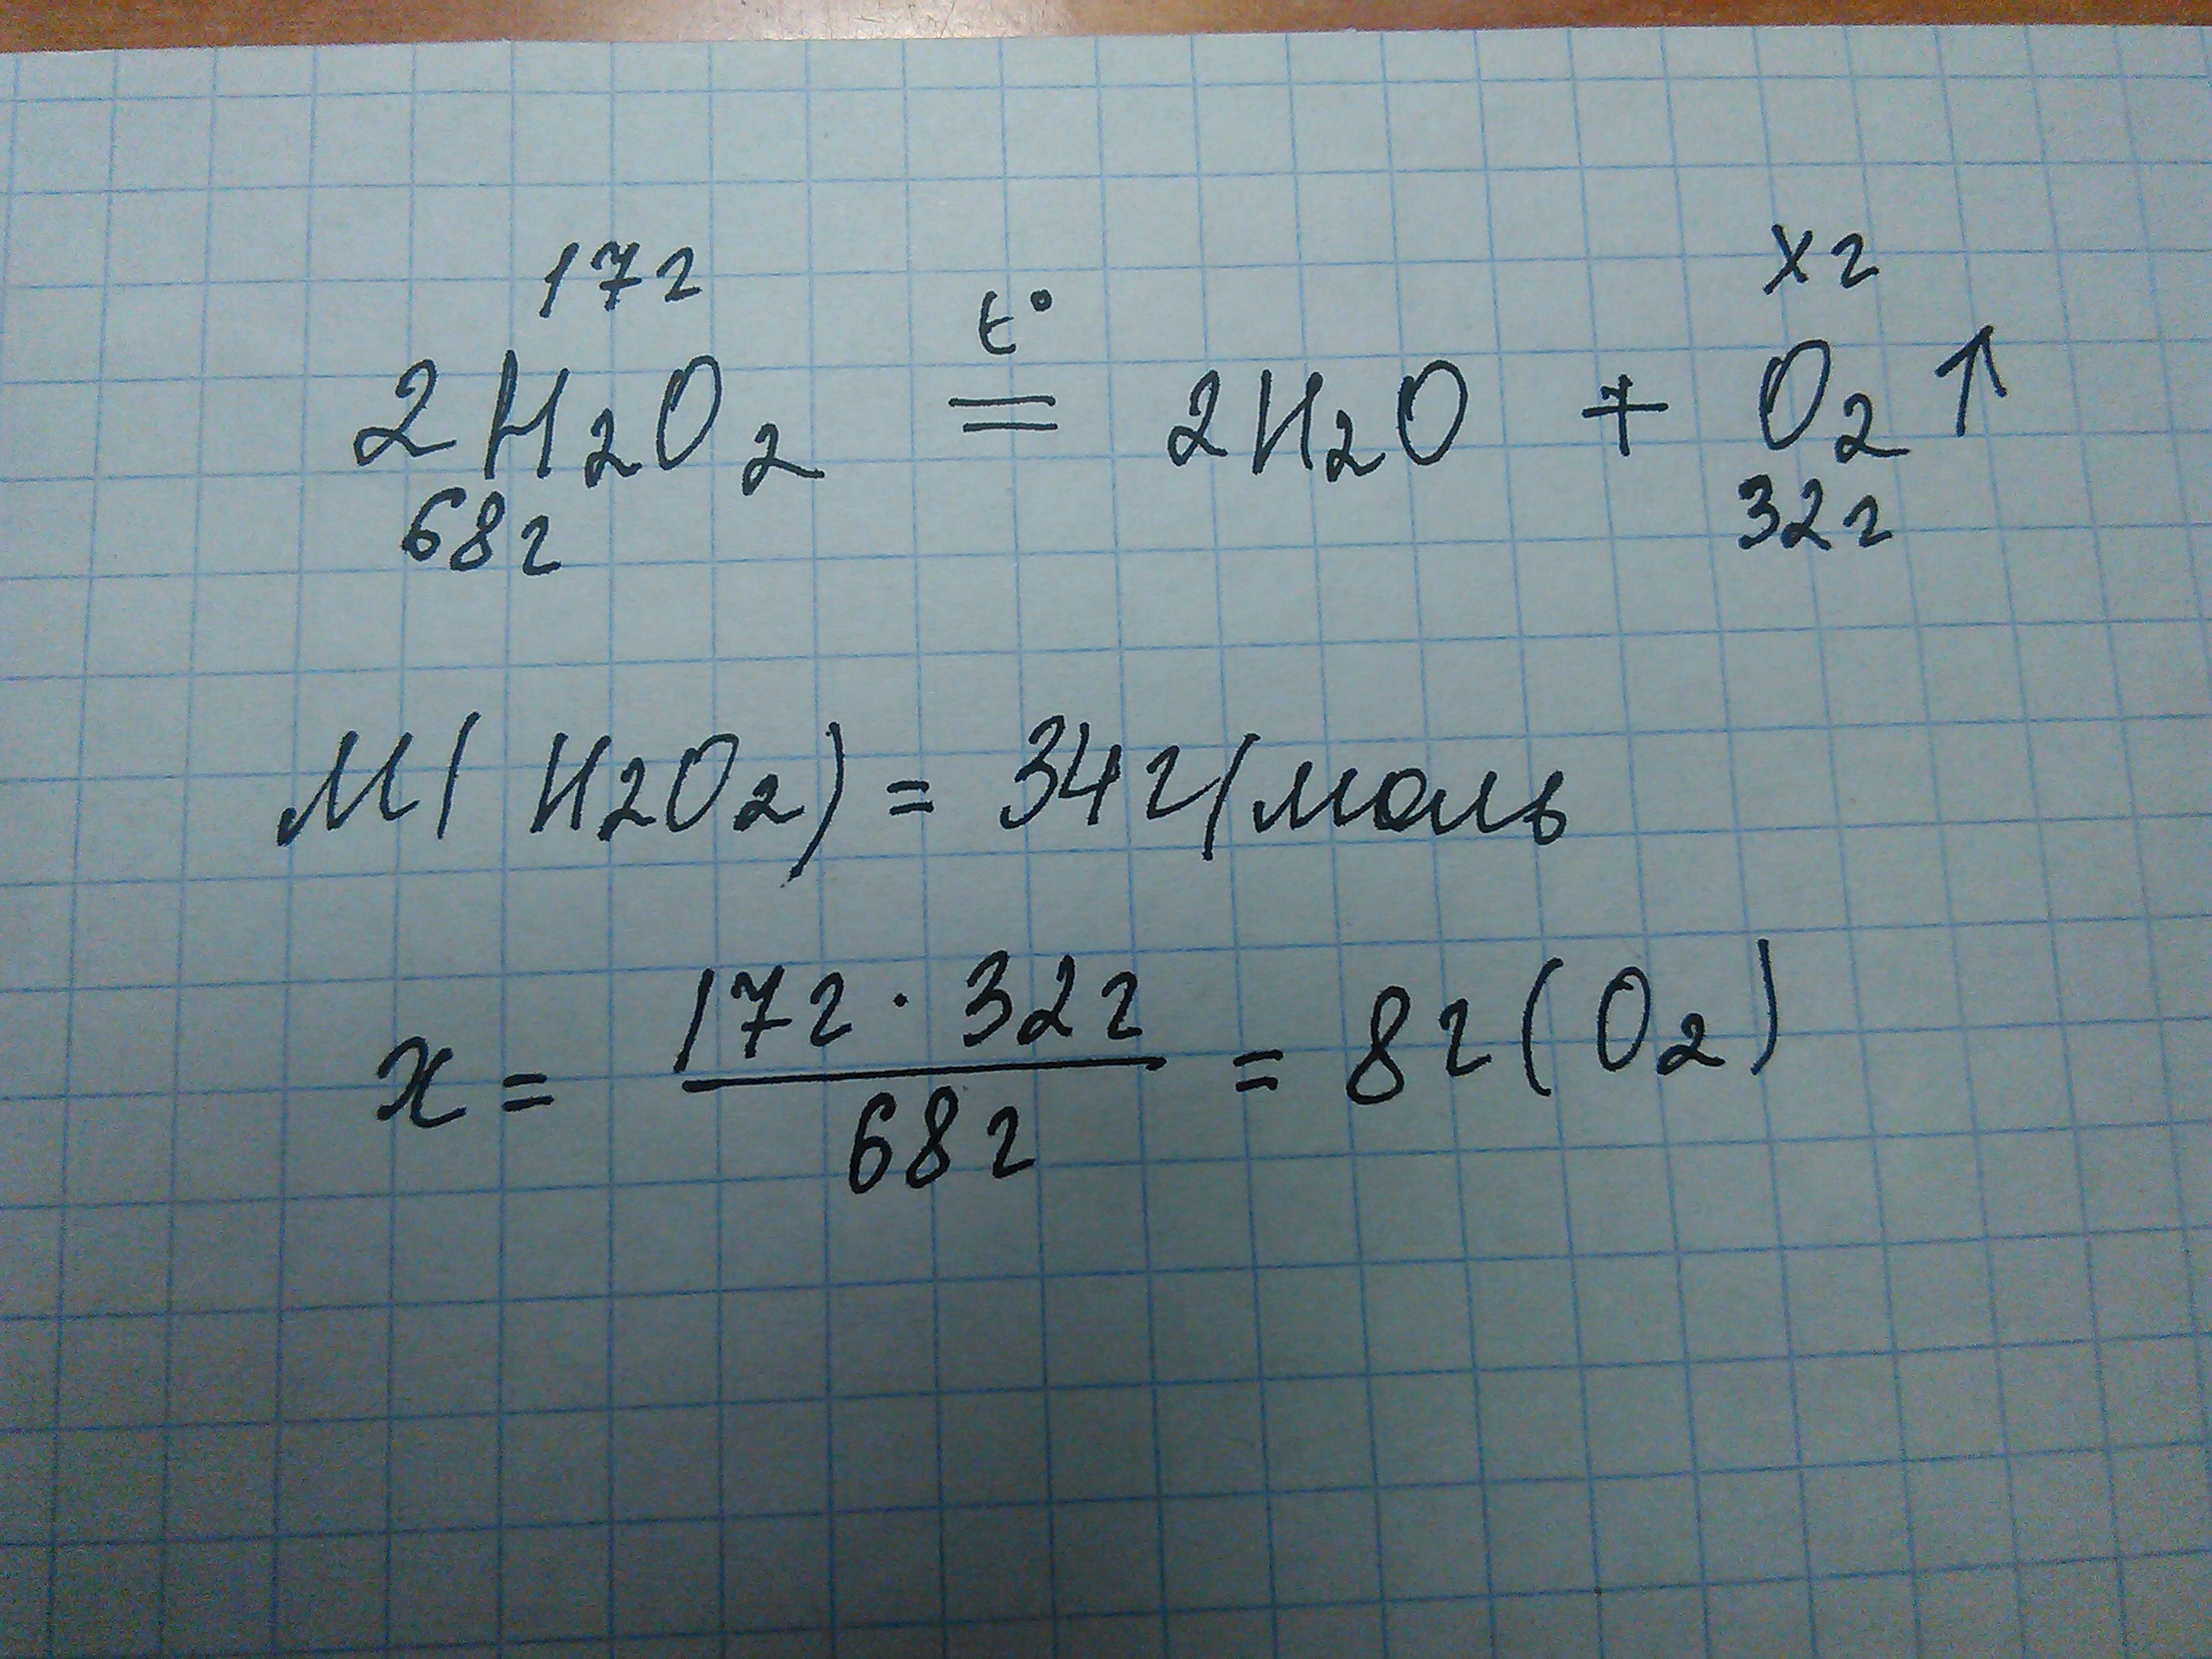 17г хг
t°
2H₂O₂ = 2H₂O + O₂↑
68г 32г
M(H₂O₂) = 34г/моль
17г · 32г
x = ――― = 8г(O₂)
68г